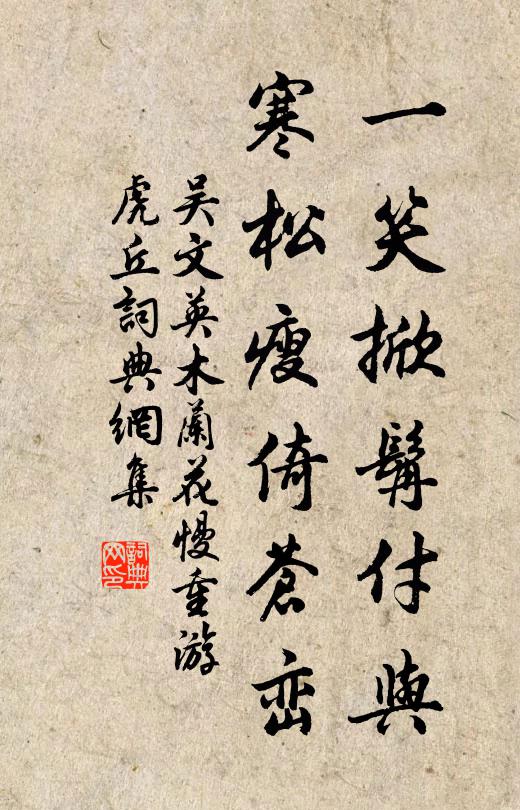 一笑掀髯付與
寒松瘦倚蒼峦
吴文英木蘭花慢重游
虎丘詞典網集
詞典网印